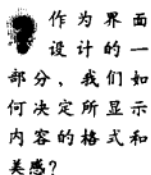 作为界面
设计的一
部分，我们如
何决定所显示
内容的格式和
美感？